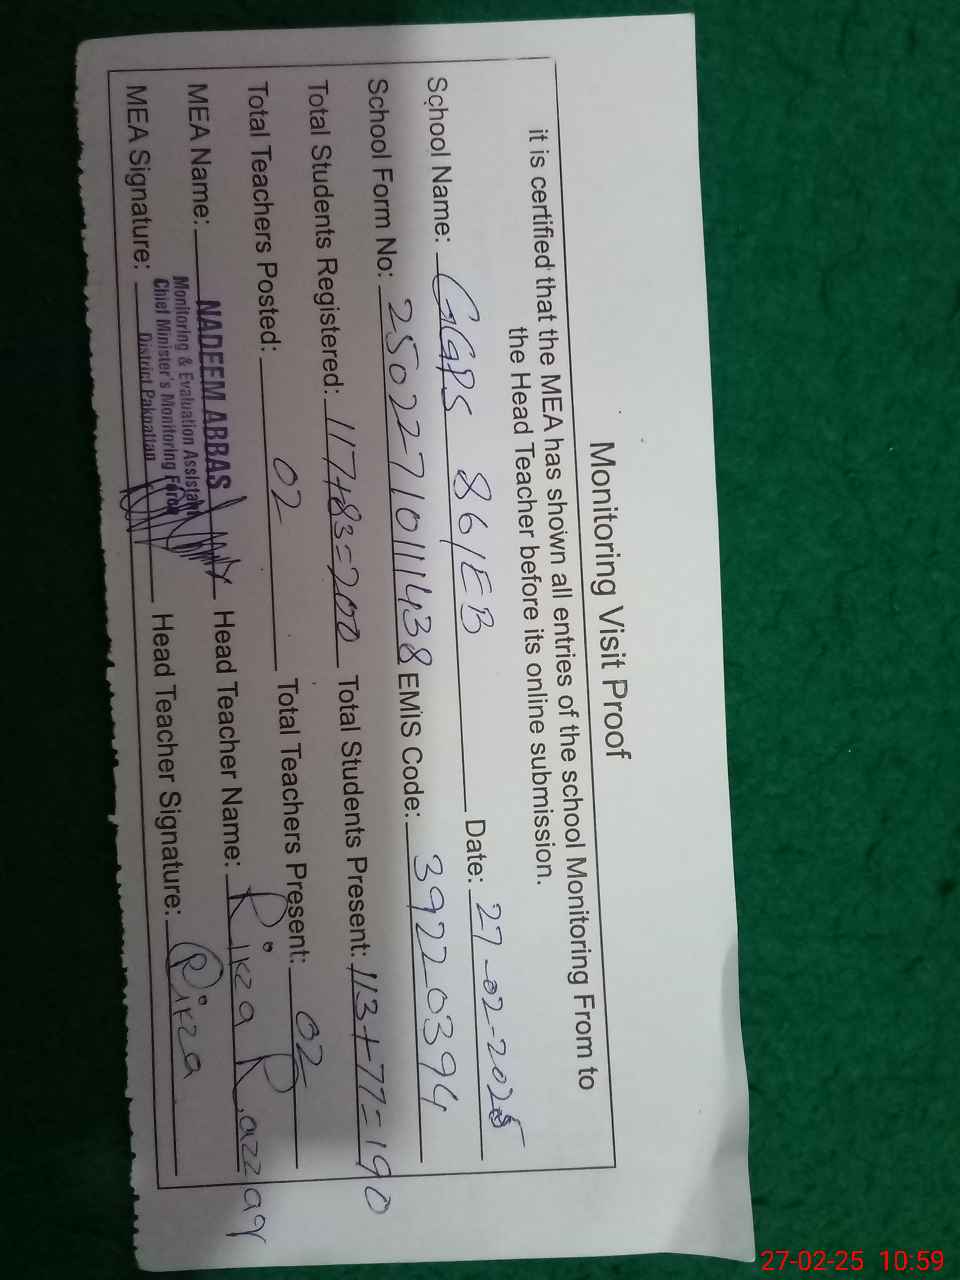 Monitoring Visit Proof
it is certified that the MEA has shown all entries of the school Monitoring From to
the Head Teacher before its online submission.
School Name: GGPS 86/EB Date: 27-02-2025
School Form No: 25022710111438 EMIS Code: 39220394
Total Students Registered: 117+83=200 Total Students Present: 113+77=190
Total Teachers Posted: 02 Total Teachers Present: 02
MEA Name: NADEEM ABBAS Head Teacher Name: Rirza Razzaq
Monitoring & Evaluation Assistant
Chief Minister's Monitoring Force
District Pakpattan
MEA Signature: Head Teacher Signature: Rirza
27-02-25 10:59